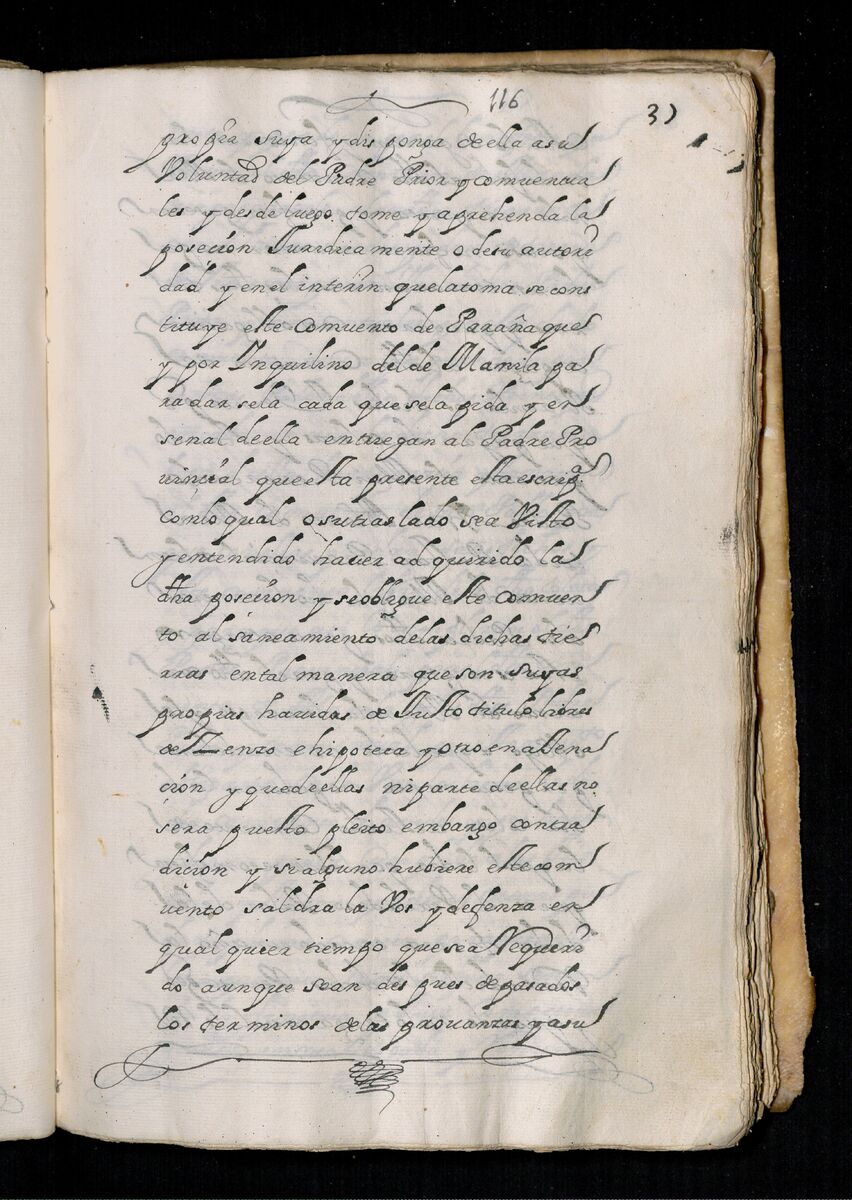 116
31
propia suya y disponga de ella a su
Voluntad del Padre Prior y comuentua
les y desde luego tome y aprehenda la
poseción Juridicamente o de su autori
dad y en el interin que la toma se cons
tituye este Comuento de Parañaque
y por Inquilino del de Manila pa
ra darsela cada que se la pida y en
senal de ella entregan al Padre Pro
uincial que esta presente esta escripª
con lo qual o su traslado sea Visto
y entendido hauer adquirido la
dha poseción y se obligue este comuen
to al saneamiento de las dichas tie
rras en tal manera que son suyas
propias hauidas de Justo titulo libres
de Zenzo e hipoteca y otro enallena
ción y que de ellas ni parte de ellas no
sera puesto pleito embargo contra
dición y si alguno hubiere este com
uento saldra la Vos y defenza en
qualquier tiempo que sea Requeri
do aunque sean despues de pasados
los terminos de las prouanzas y a su